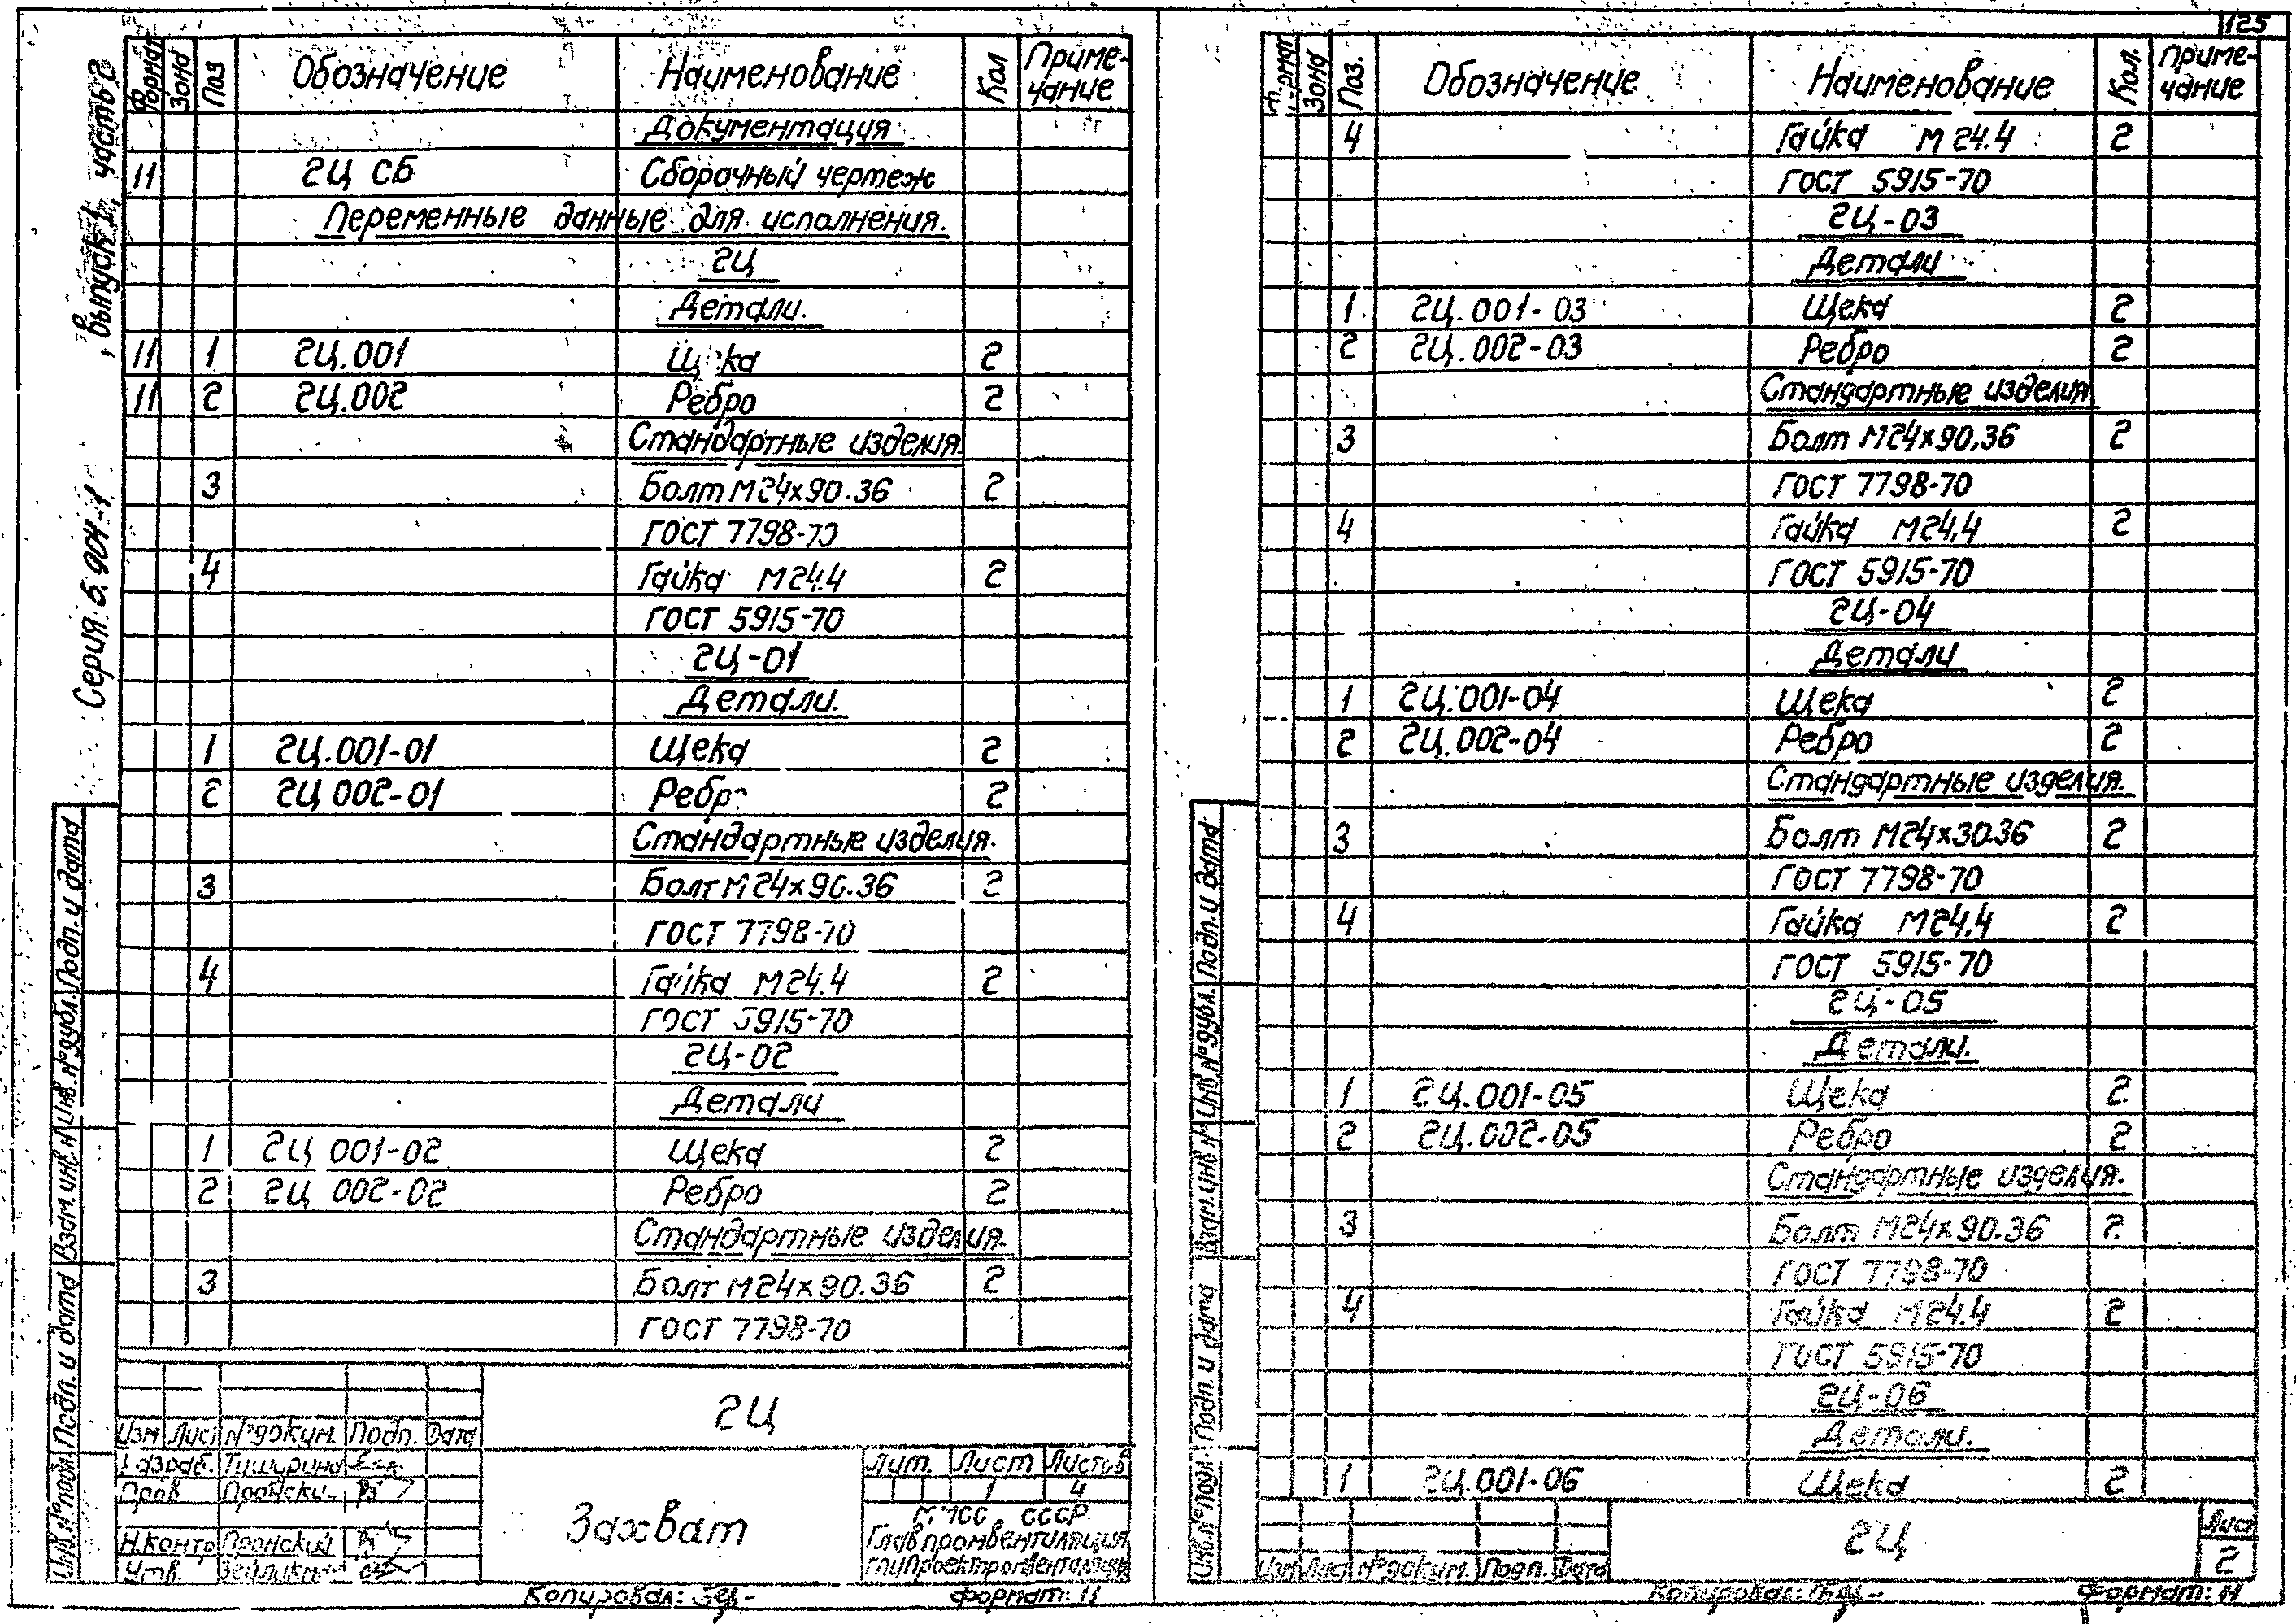 125
Серия 5.904-1, выпуск 1, часть 2
Формат Зона Поз Обозначение Наименование Кол Приме-чание
Документация
11 2Ц СБ Сборочный чертеж
Переменные данные для исполнения.
2Ц
Детали.
11 1 2Ц.001 Щека 2
11 2 2Ц.002 Ребро 2
Стандартные изделия.
3 Болт М24х90.36 2
ГОСТ 7798-70
4 Гайка М24.4 2
ГОСТ 5915-70
2Ц-01
Детали.
1 2Ц.001-01 Щека 2
2 2Ц 002-01 Ребро 2
Стандартные изделия.
3 Болт М24х90.36 2
ГОСТ 7798-70
4 Гайка М24.4 2
ГОСТ 5915-70
2Ц-02
Детали
1 2Ц 001-02 Щека 2
2 2Ц 002-02 Ребро 2
Стандартные изделия.
3 Болт М24х90.36 2
ГОСТ 7798-70
2Ц
Изм Лист № докум. Подп. Дата
Разраб. Тиширина
Пров Пронский
Н.контр Пронский
Утв.
Захват
Лит. Лист Листов
1 4
ММСС СССР
Главпромвентиляция
ГПИ Проектпромвентиляция
Копировал: Формат: 11
Инв.№ подл. Подп. и дата Взам.инв.№ Инв.№ дубл. Подп. и дата
Формат Зона Поз. Обозначение Наименование Кол. Приме-чание
4 Гайка М24.4 2
ГОСТ 5915-70
2Ц-03
Детали
1. 2Ц.001-03 Щека 2
2 2Ц.002-03 Ребро 2
Стандартные изделия
3 Болт М24х90.36 2
ГОСТ 7798-70
4 Гайка М24.4 2
ГОСТ 5915-70
2Ц-04
Детали
1 2Ц.001-04 Щека 2
2 2Ц.002-04 Ребро 2
Стандартные изделия.
3 Болт М24х30.36 2
ГОСТ 7798-70
4 Гайка М24.4 2
ГОСТ 5915-70
2Ц-05
Детали.
1 2Ц.001-05 Щека 2
2 2Ц.002-05 Ребро 2
Стандартные изделия.
3 Болт М24х90.36 2
ГОСТ 7798-70
4 Гайка М24.4 2
ГОСТ 5915-70
2Ц-06
Детали.
1 2Ц.001-06 Щека 2
2Ц
Лист
2
Изм Лист № докум. Подп. Дата
Копировал: Формат: 11
Инв.№ подл. Подп. и дата Взам.инв.№ Инв.№ дубл. Подп. и дата